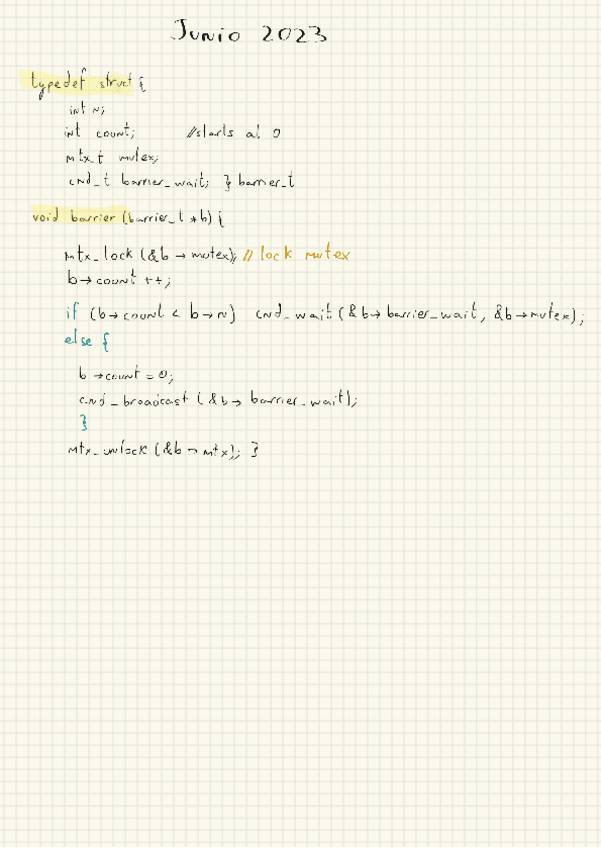 Junio 2023
typedef struct {
int n;
int count; //starts at 0
mtx_t mutex;
cnd_t barrier_wait; } barrier_t
void barrier (barrier_t *b) {
mtx_lock (&b → mutex); // lock mutex
b→count ++;
if (b→count < b→n) cnd_wait (&b→barrier_wait, &b→mutex);
else {
b→count = 0;
cnd_broadcast (&b→ barrier_wait);
}
mtx_unlock (&b → mtx); }